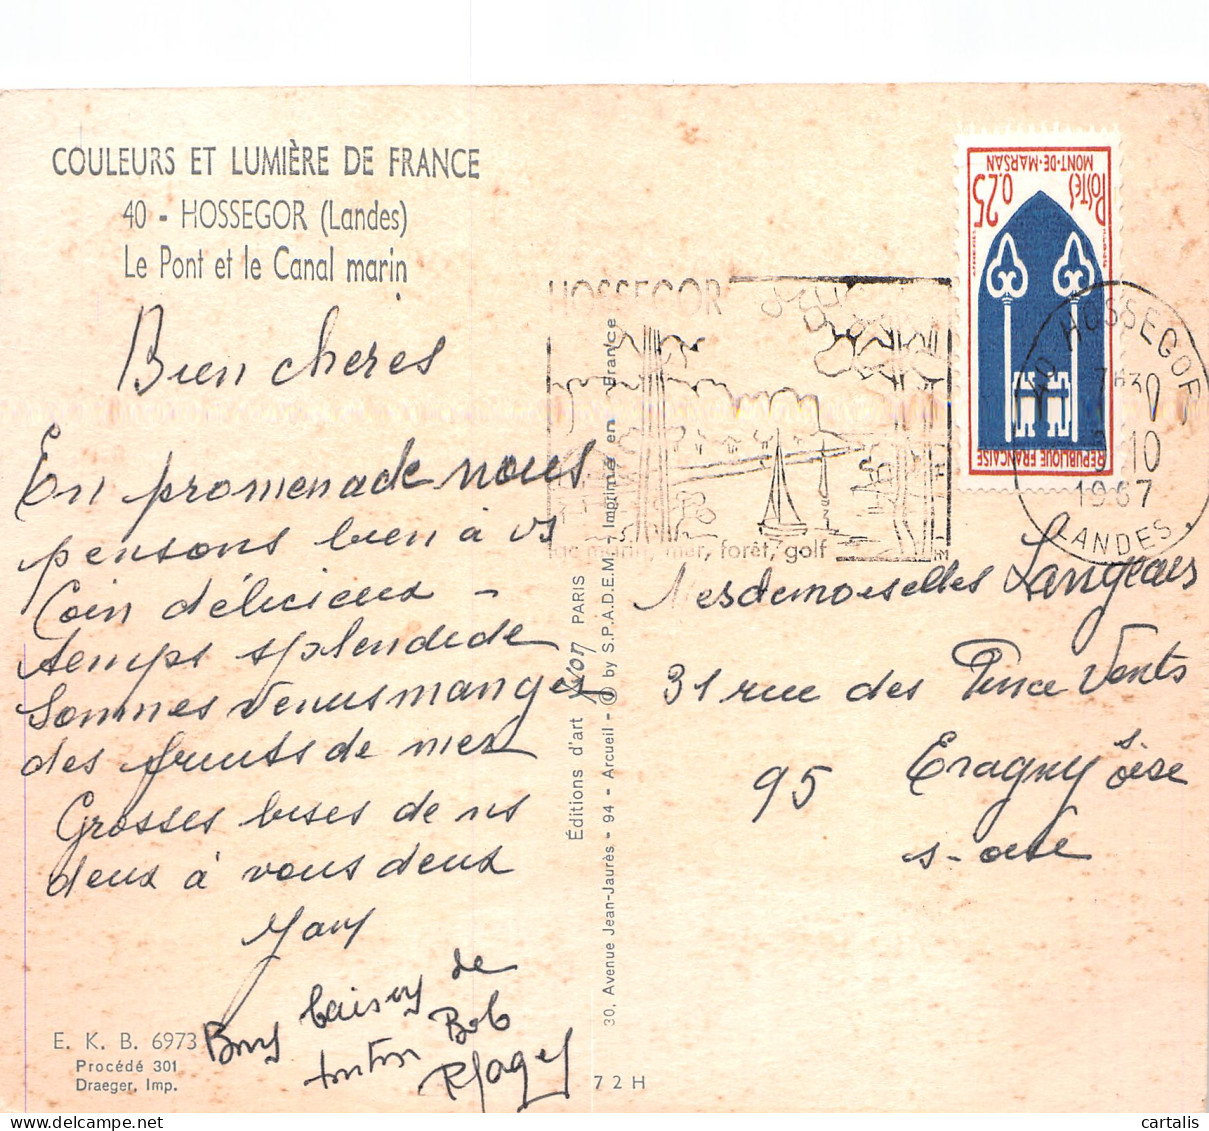 COULEURS ET LUMIÈRE DE FRANCE
40 - HOSSEGOR (Landes)
Le Pont et le Canal marin
Bien cheres
En promenade nous
pensons bien à vs
Coin délicieux -
temps splendide
Sommes venus manger
des fruits de mer
Grosses bises de ns
deux à vous deux
Bons baisers de
tonton Bob
E. K. B. 6973
Procédé 301
Draeger, Imp.
Éditions d'art yvon PARIS
30, Avenue Jean-Jaurès - 94 - Arcueil - © by S.P.A.D.E.M. - Imprimé en France
72H
HOSSEGOR
lac marin, mer, forêt, golf
POSTES
0.25
MONT-DE-MARSAN
REPUBLIQUE FRANÇAISE
40 HOSSEGOR
7H30
10
1967
LANDES
Mesdemoiselles Langlais
31 rue des Pince Vents
95 Eragny s/oise
s-oise
cartalis